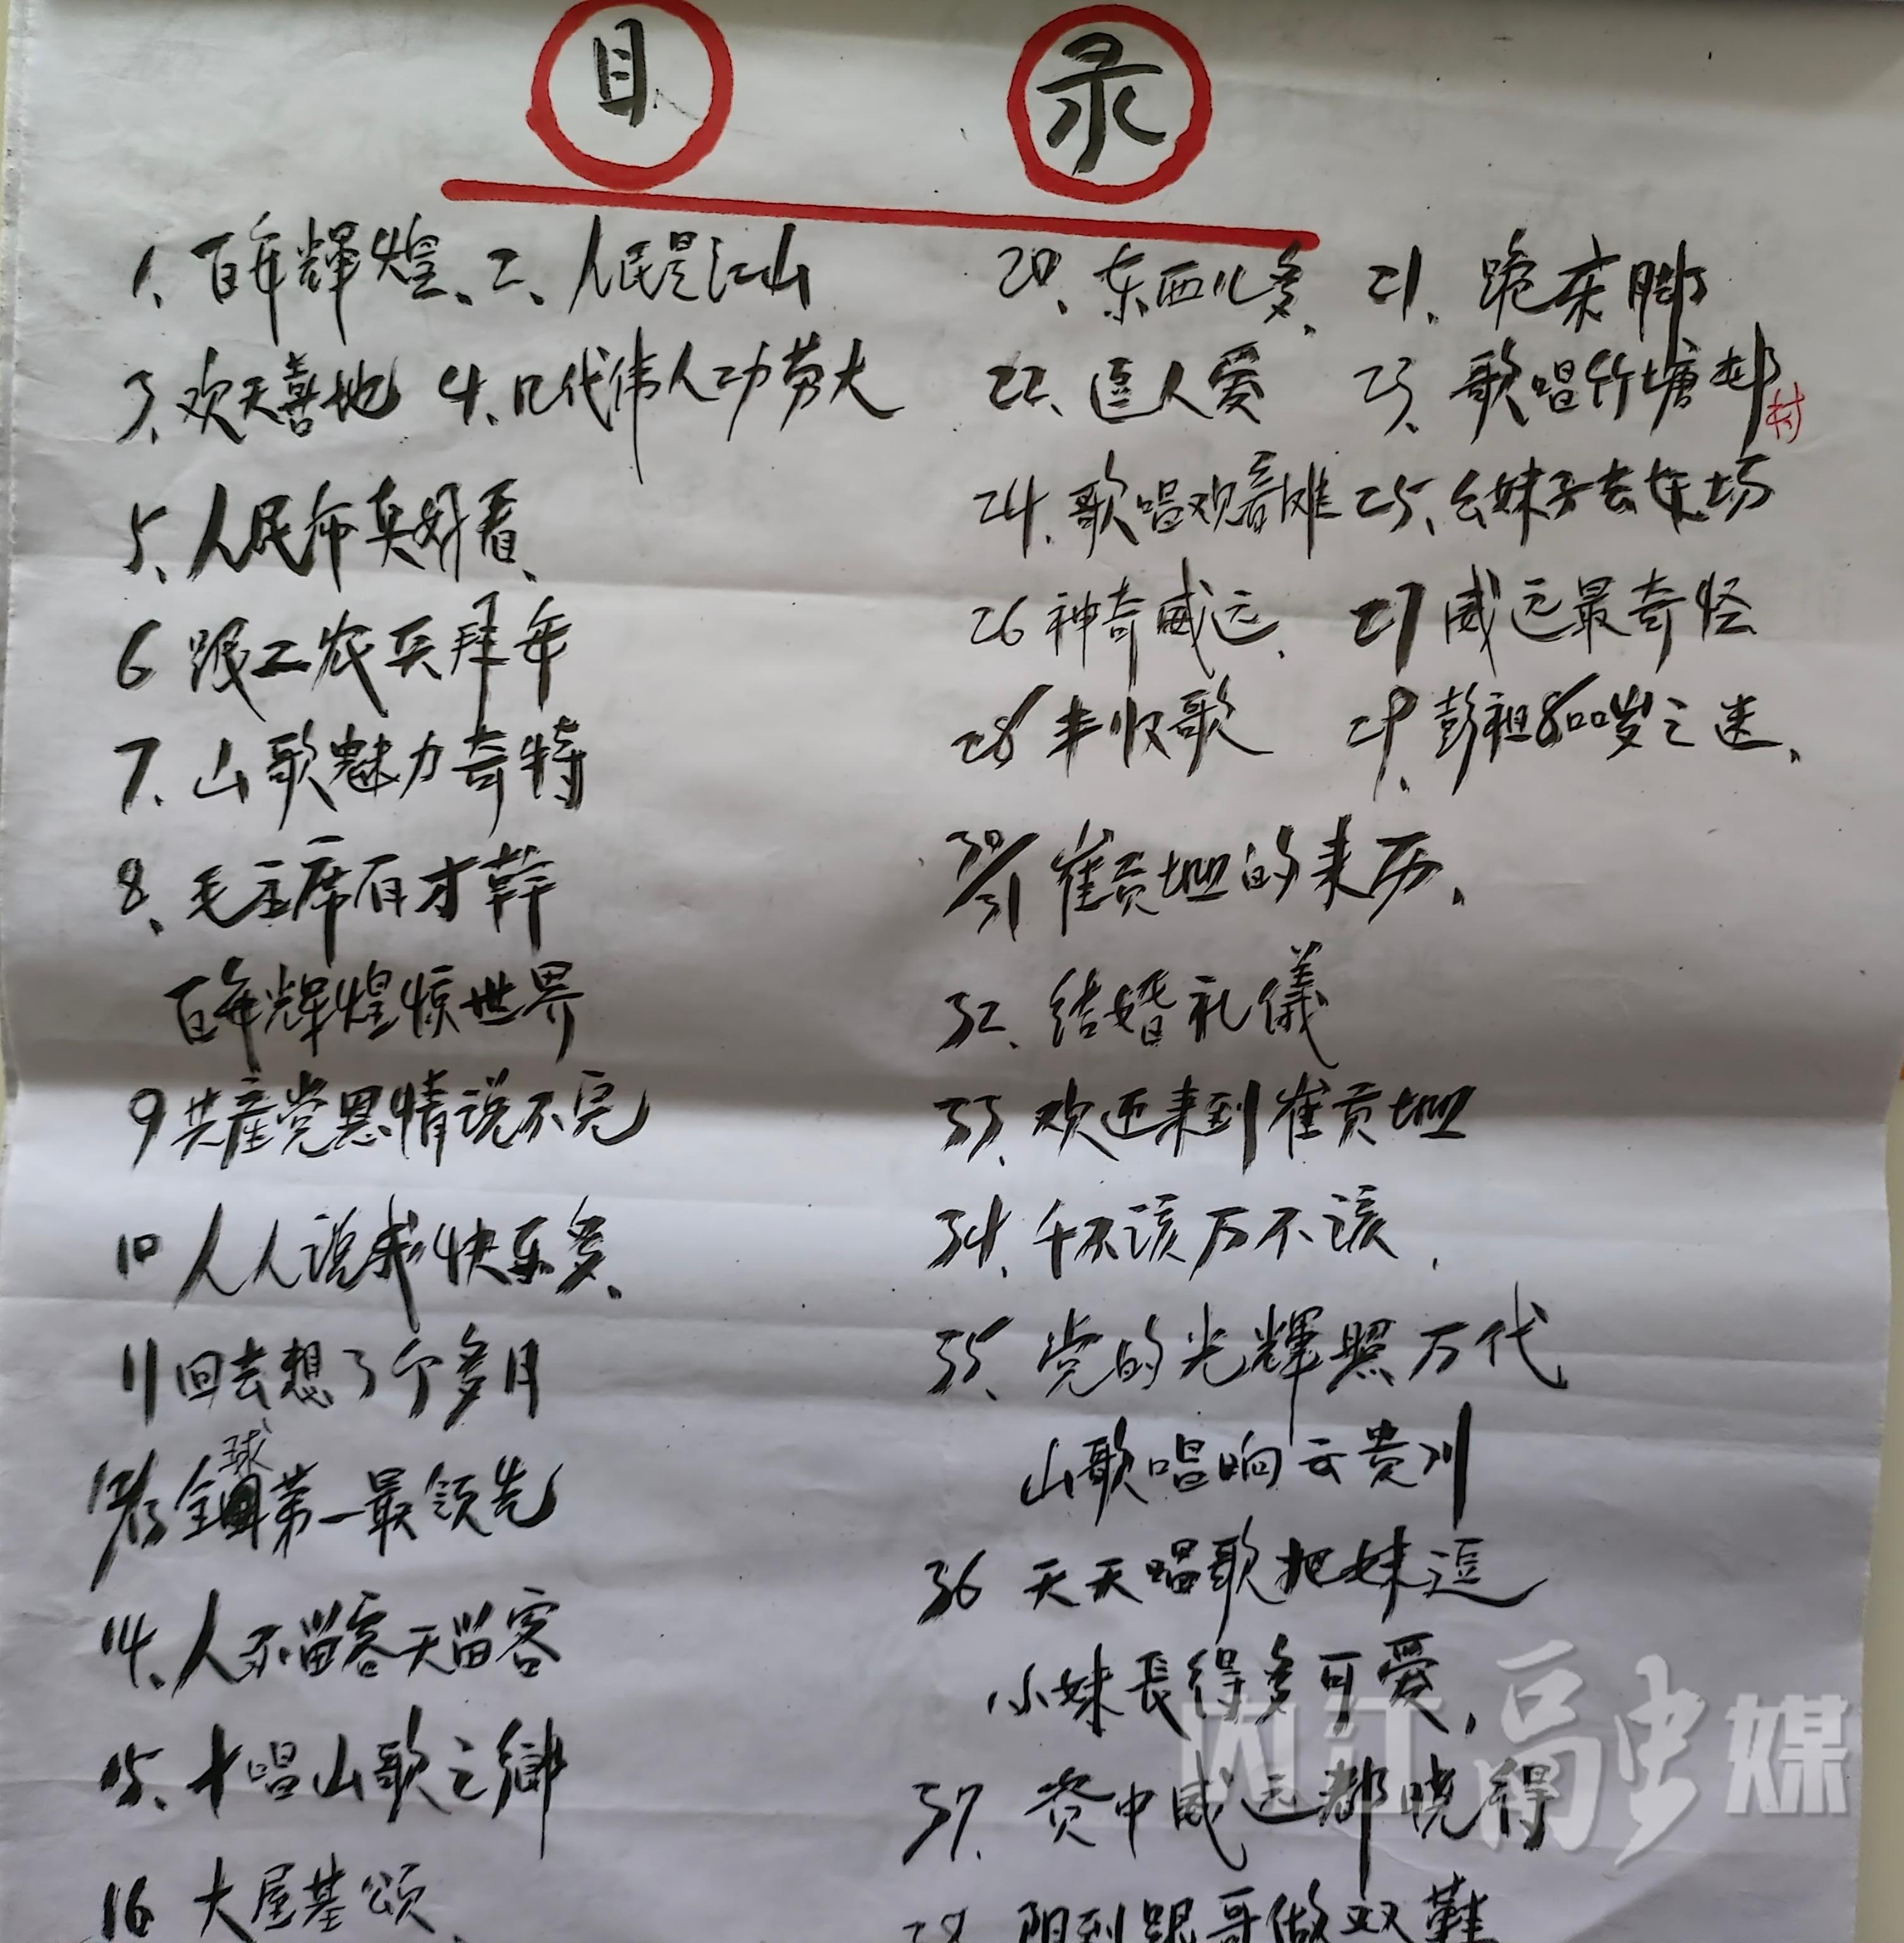 目 录
1、百年辉煌、二、人民是江山
3、欢天喜地 4、几代伟人功劳大
5、人民币真好看、
6 跟工农兵拜年
7、山歌魅力奇特
8、毛主席有才幹
百年辉煌惊世界
9 共產党恩情说不完
10 人人说我快乐多、
11 回去想了个多月
球
13 全 第一最领先
14、人不留客天留客
15、才唱山歌之鄉
16 大屋基颂、
20、东西儿多、 21、跪床脚
22、逗人爱 23、歌唱竹塘邨
村
24、歌唱观音滩 25、幺妹子去 场
26 神奇威远、 27 威远最奇怪
28 丰收歌 29、彭祖800岁之迷、
30/31 崔贡 的来历、
32、结婚礼儀
33、欢迎来到崔贡
34、千不该万不该、
35、党的光輝照万代
山歌唱响云贵川
36 天天唱歌把妹逗
小妹長得多可爱，
37、资中威远都晓得
阴到跟哥做双鞋
内江融媒